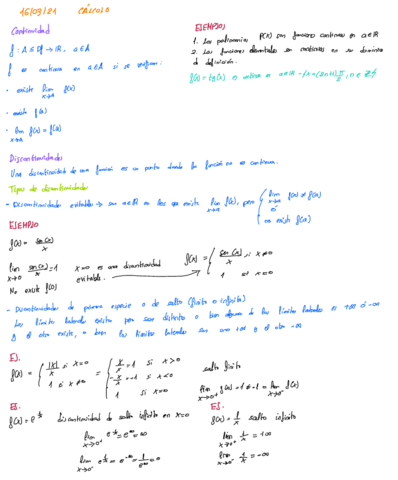 16/09/21 CÁLCULO
Continuidad
f: A ⊆ ℝ → ℝ, a ∈ A
f es continua en a∈A si se verifican:
· existe lim x→a f(x)
· existe f(a)
· lim x→a f(x) = f(a)
EJEMPLOS
1. Los polinomios P(x) son funciones continuas en a∈ℝ
2. Las funciones elementales son continuas en su dominio
de definición.
f(x) = tg(x) es continua en a∈ℝ - {x = (2n+1)π/2, n ∈ ℤ}
Discontinuidades
Una discontinuidad de una función es un punto donde la función no es continua.
Tipos de discontinuidades
- Discontinuidades evitables → son a∈ℝ en los que existe lim x→a f(x), pero { lim x→a f(x) ≠ f(a)
o
no existe f(a)
EJEMPLO
f(x) = sen(x)/x
lim x→0 sen(x)/x = 1 x=0 es una discontinuidad
evitable.
No existe f(0)
f(x) = { sen(x)/x si x≠0
1 si x=0
- Discontinuidades de primera especie o de salto (finito o infinito)
Los límites laterales existen pero son distintos o bien alguno de los límites laterales es +∞ ó -∞
y el otro existe, o bien los límites laterales son uno +∞ y el otro -∞
EJ.
f(x) = { |x|/x si x=0
1 si x≠0
= { x/x = 1 si x>0
-x/x = -1 si x<0
1 si x=0
salto finito
lim x→0⁺ f(x) = 1 ≠ -1 = lim x→0⁻ f(x)
EJ.
f(x) = e^(1/x) discontinuidad de salto infinito en x=0
lim x→0⁺ e^(1/x) = e^∞ = ∞
lim x→0⁻ e^(1/x) = e^(-∞) = 1/e^∞ = 0
EJ.
f(x) = 1/x salto infinito
lim x→0⁺ 1/x = +∞
lim x→0⁻ 1/x = -∞